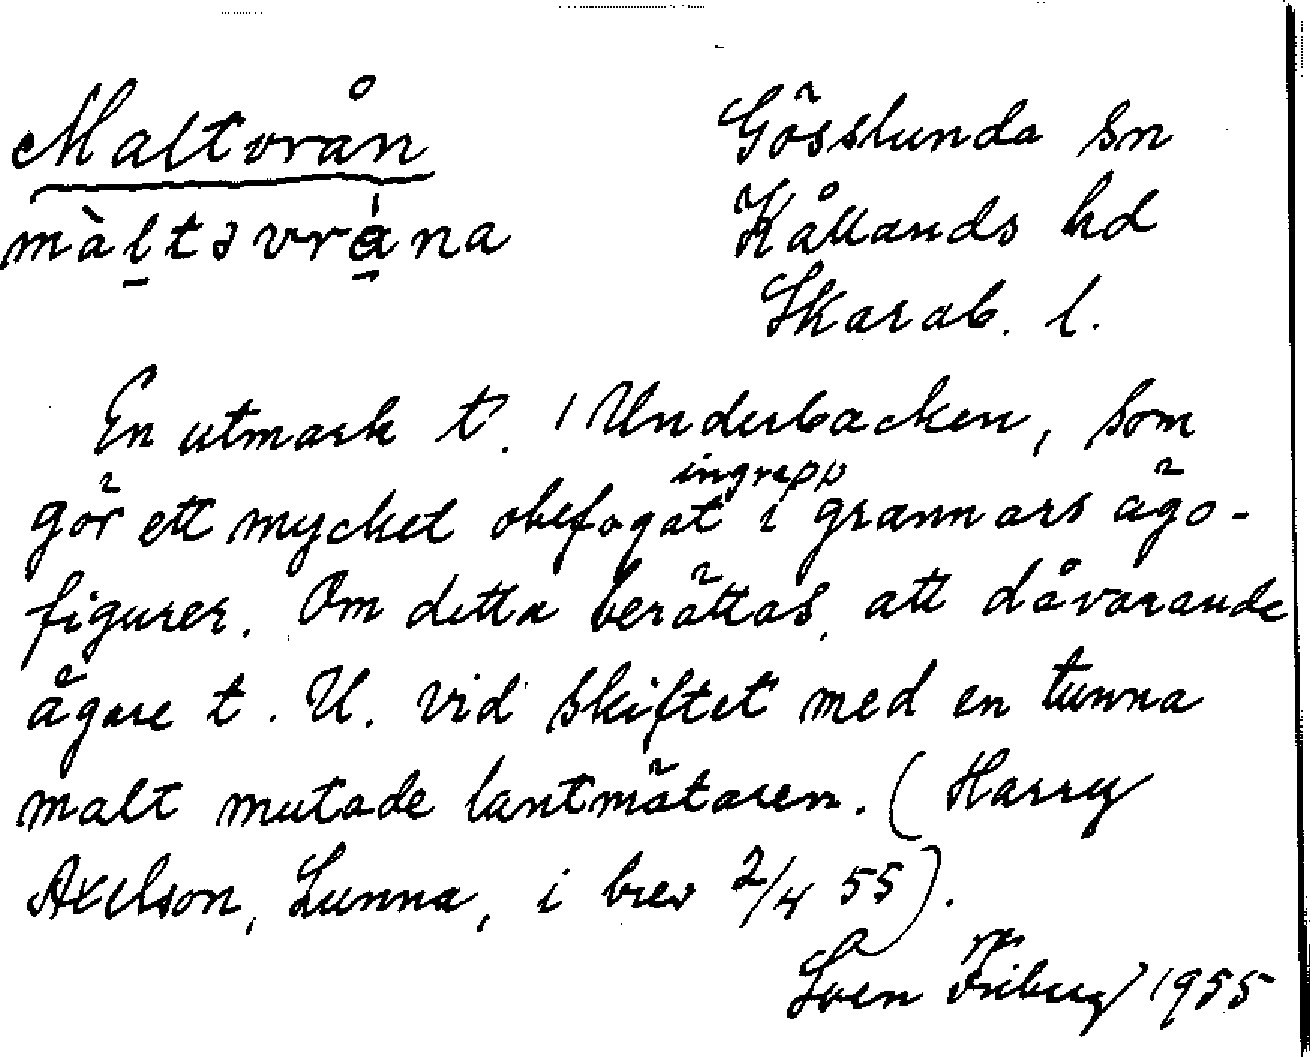 Maltvrån
Gösslunda sn
màltəvrȧ́na
Kållands hd
Skarab. l.
En utmark t. 1 Underbacken, som
gör ett mycket obefogat ingrepp i grannars ägo-
figurer. Om detta berättas, att dåvarande
ägare t. U. vid skiftet med en tunna
malt mutade lantmätaren. (Harry
Axelson, Lunna, i brev 2/4 55).
Sven Friberg 1955